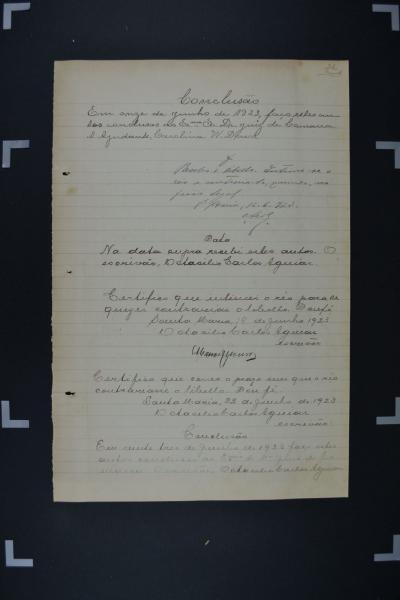 Conclusão
Em onze de junho de 1923, faço estes au-
tos conclusos ao Exmo Cr. Dr. juiz de Comarca
O Ajudante, Carolina W.
J.
Recebo o libello. Intime-se o
réo a contrarial-o, querendo, no
prazo legal.
S. Maria, 12-6-923.
Data
Na data supra recebi estes autos. O
escrivão, Octacilio Carlos Aguiar.
Certifico que intimei o réo para se
quizer contrariar o libello. Dou fé
Santa Maria, 18 de Junho 1923
Octacilio Carlos Aguiar
escrivão
Certifico que correu o prazo sem que o réo
contrariasse o libello. Dou fé.
Santa Maria, 22 de Junho de 1923
Octacilio Carlos Aguiar
escrivão.
Conclusão
Em vinte tres de Junho de 1923 faço estes
autos conclusos ao Exmo. Sr. Dr. Juiz de
O escrivão, Octacilio Carlos Aguiar